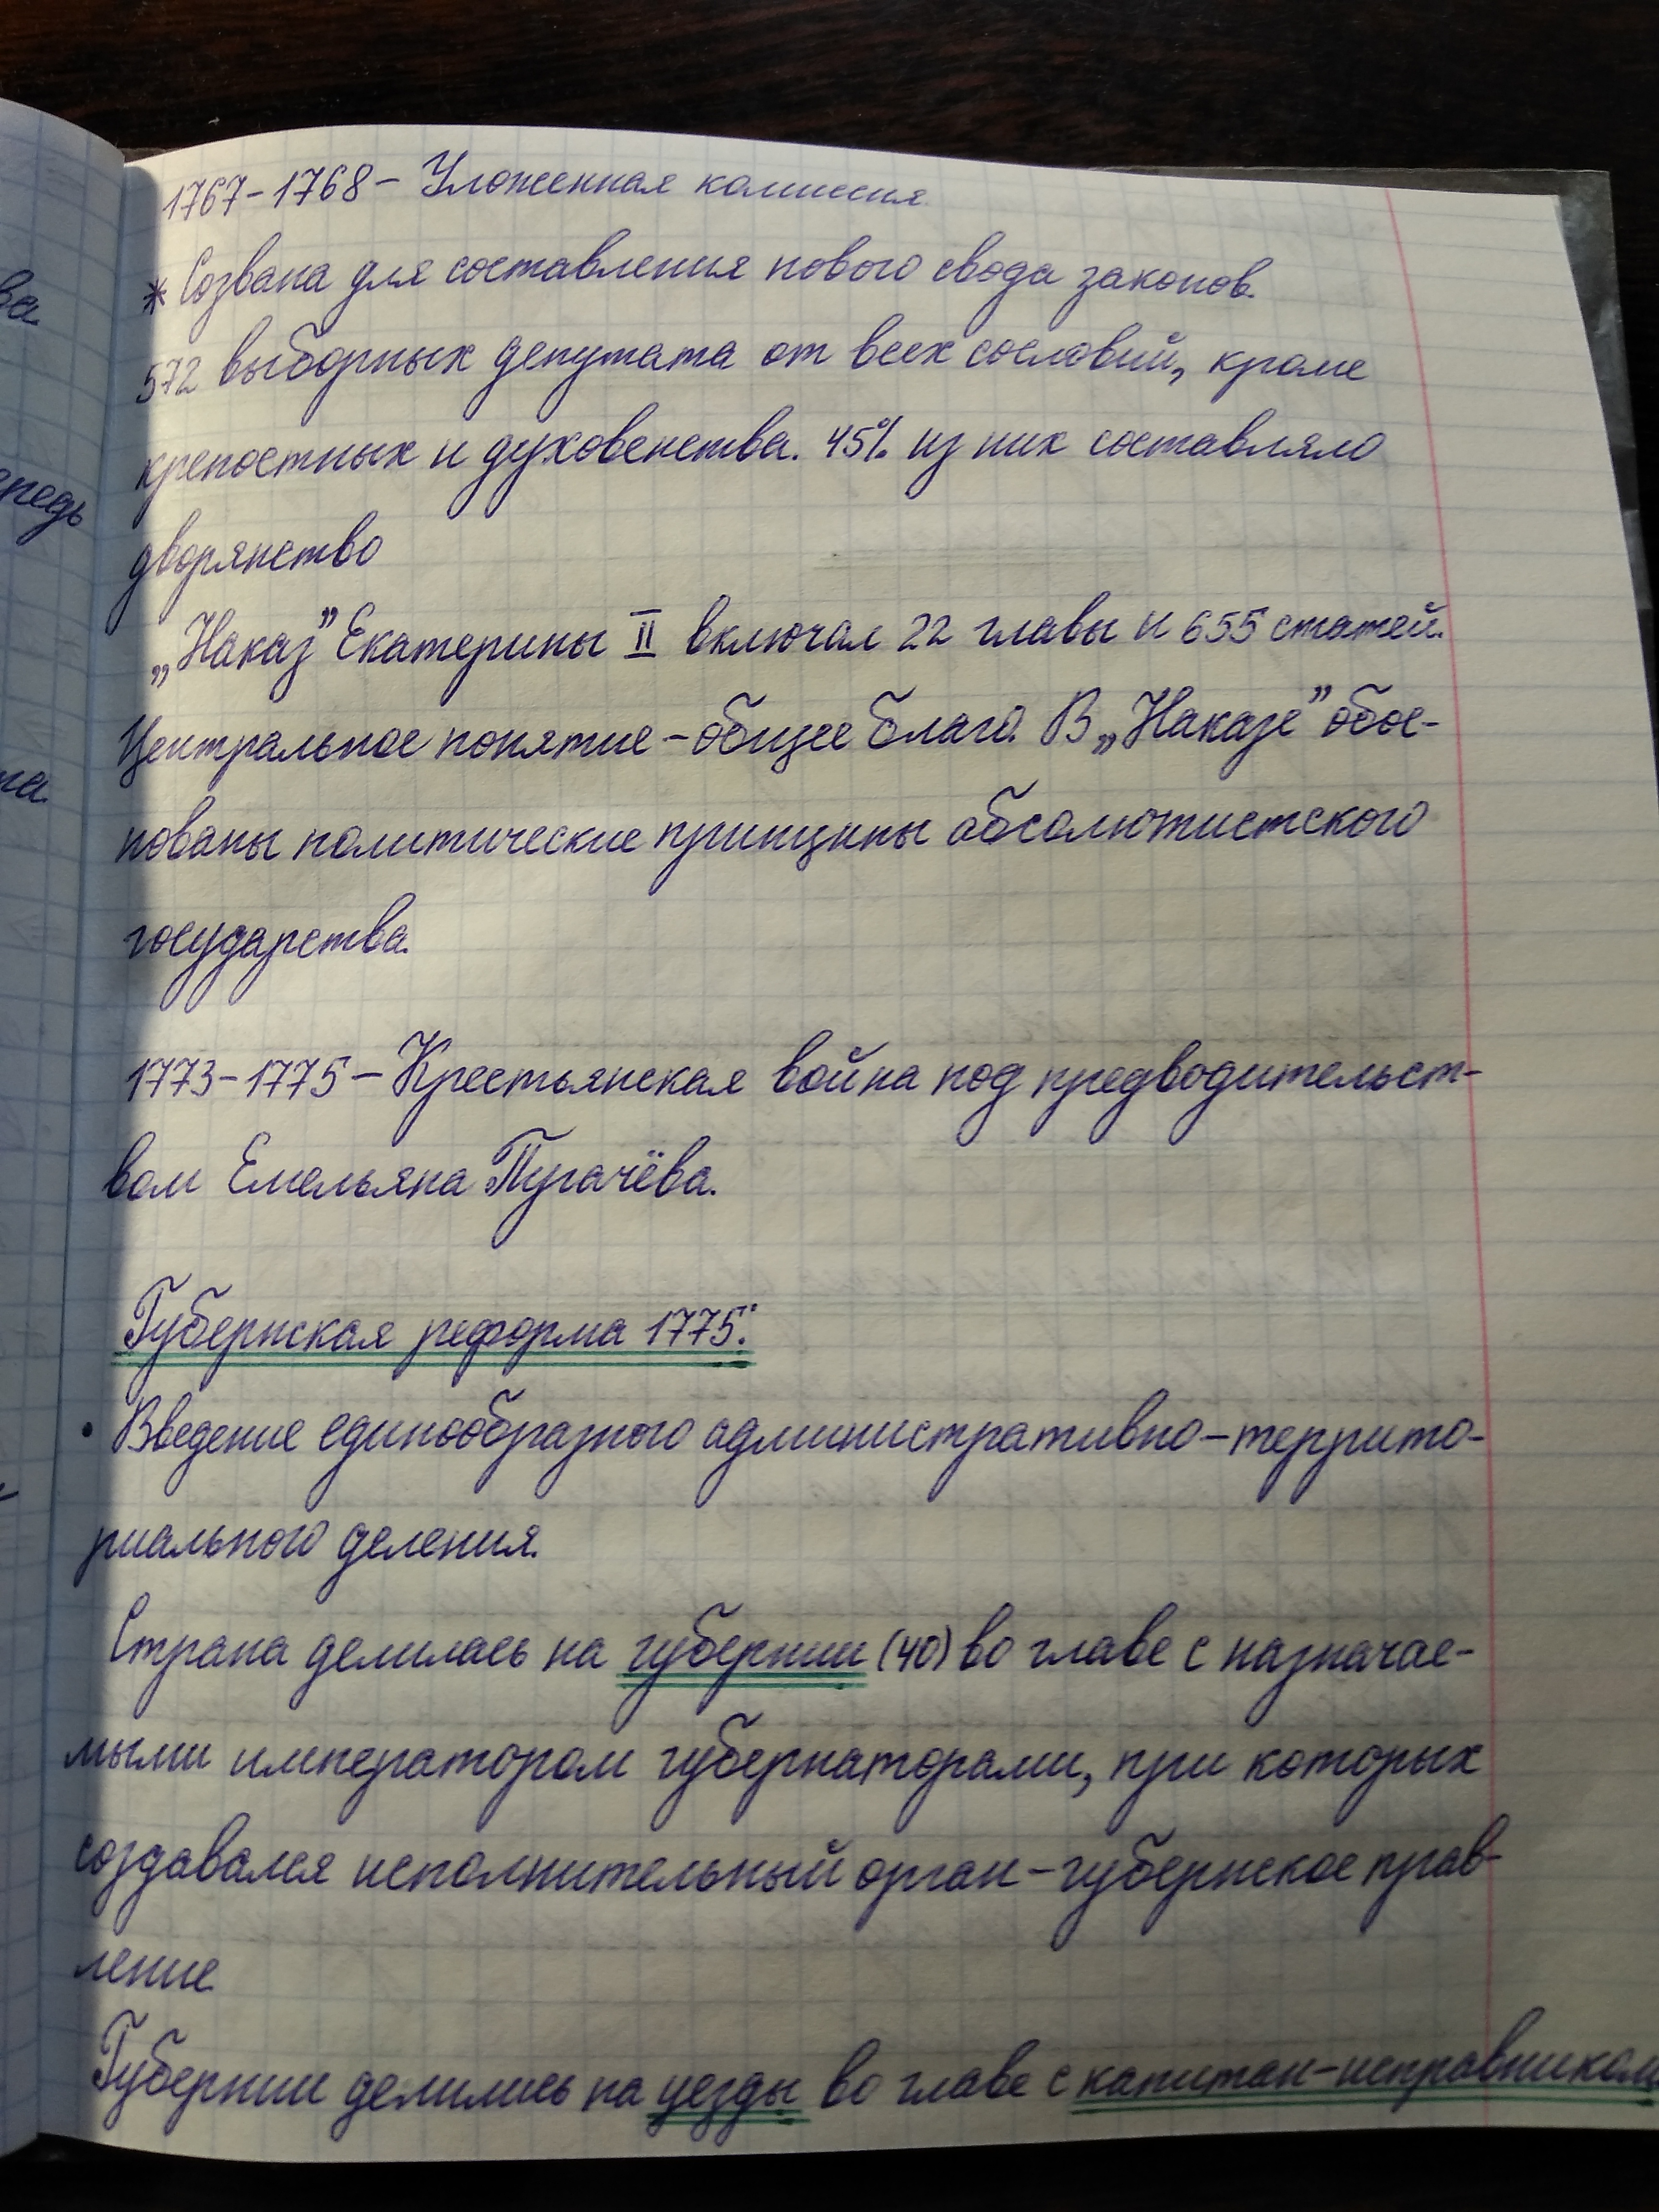 1767-1768 - Уложенная комиссия.
* Созвана для составления нового свода законов.
572 выборных депутата от всех сословий, кроме
крепостных и духовенства. 45% из них составляло
дворянство
„Наказ” Екатерины II включал 22 главы и 655 статей.
Центральное понятие - общее благо. В „Наказе” обос-
нованы политические принципы абсолютистского
государства.
1773-1775 - Крестьянская война под предводительст-
вом Емельяна Пугачёва.
Губернская реформа 1775:
• Введение единообразного административно-террито-
риального деления.
Страна делилась на губернии (40) во главе с назначае-
мыми императором губернаторами, при которых
создавался исполнительный орган - губернское прав-
ление
Губернии делились на уезды во главе с капитан-исправником
ва
редь
та